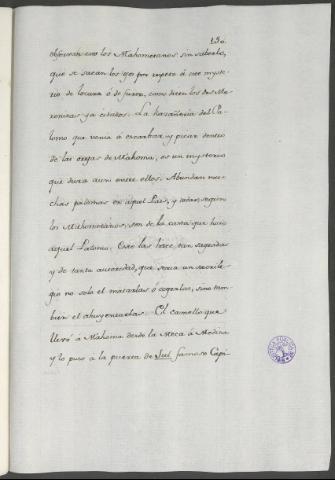 136.
los Mahometanos sin saberlo,
que se sacan los ojos por respeto á este myste-
rio de locura ó de furor, como dicen los dos Ma-
ronitas ya citados. La hazañeria del Pa-
lomo que venia á escarbar y picar dentro
de las orejas de Mahoma, es un mysterio
que dura aun entre ellos. Abundan mu-
chas palomas en aquel Pais, y todas, segun
los Mahometanos, son de la casta que hizo
aquel Palomo. Esto las hace tan sagradas
y de tanta autoridad, que seria un sacrile-
gio no solo el matarlas ó cogerlas, sino tam-
bien el ahuyentarlas. El camello que
llevó á Mahoma desde la Meca á Medina
y lo puso á la puerta de Jul famoso Capi-